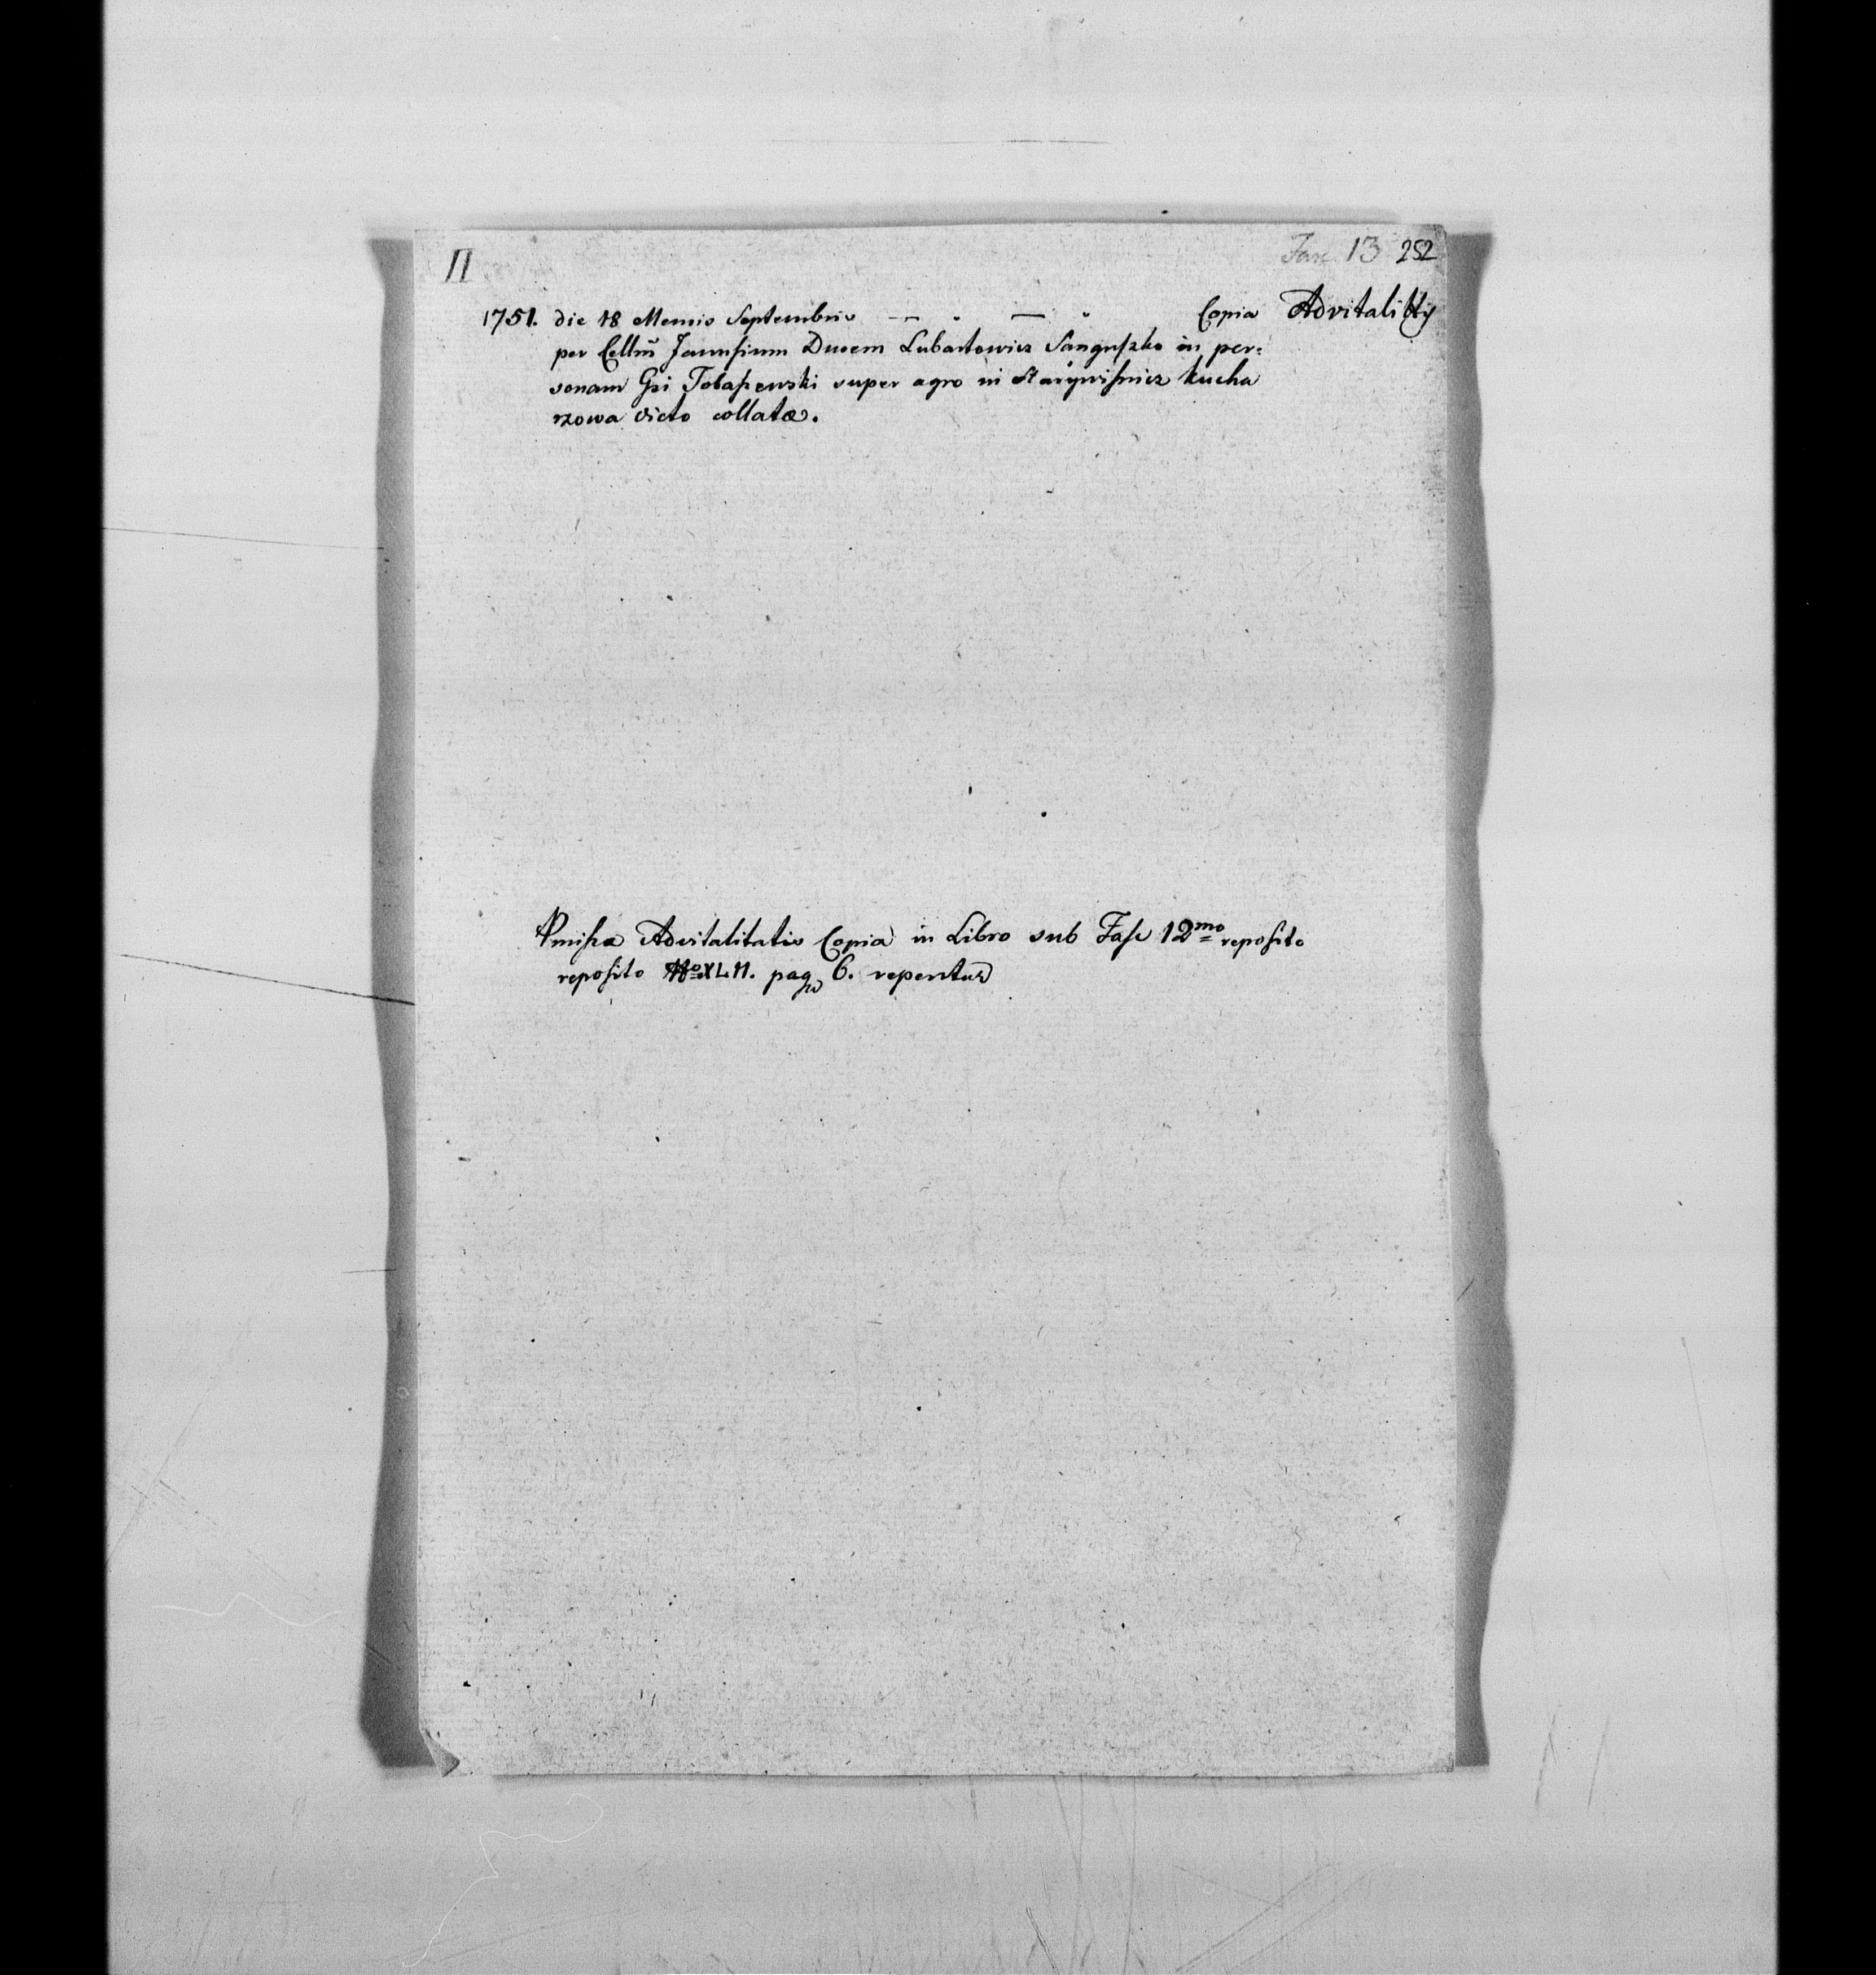 II
Fasc 13 252
1751. die 18 Mensis Septembris — " — " Copia Advitalitty
per Cellm̃ Januſium Ducem Lubartowicz Sanguſzko in per:
sonam Gsi Tobaſzewski super agro in Starywiſnicz kucha
rzowa dicto collatæ.
Pmiſsæ Advitalitatis Copia in Libro sub Faſc 12mo reposito
repoſito No XLII. pag 6. reperitur